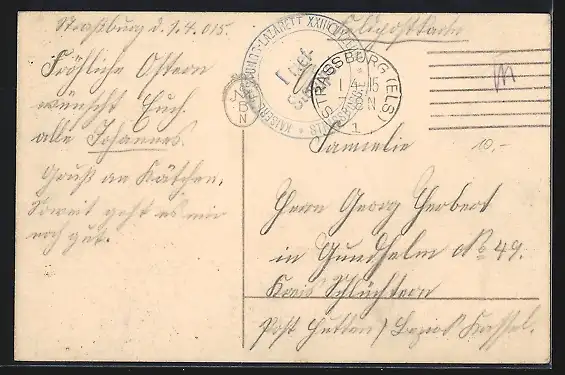 Strassburg d. 1.4.015.
Feldpostkarte
Fröhliche Ostern
wünscht Euch
alle Johannes.
Gruß an Kätchen.
Soweit geht es mir
noch gut.
KAISERL. LAZARETT XXIII
Brief
STRASSBURG (ELS)
1.4.15
N
1
Familie
10.-
Herrn Georg Herbert
in Gundhelm No 49.
Kreis Schlüchtern
Post Hutten / Bezirk Kassel.